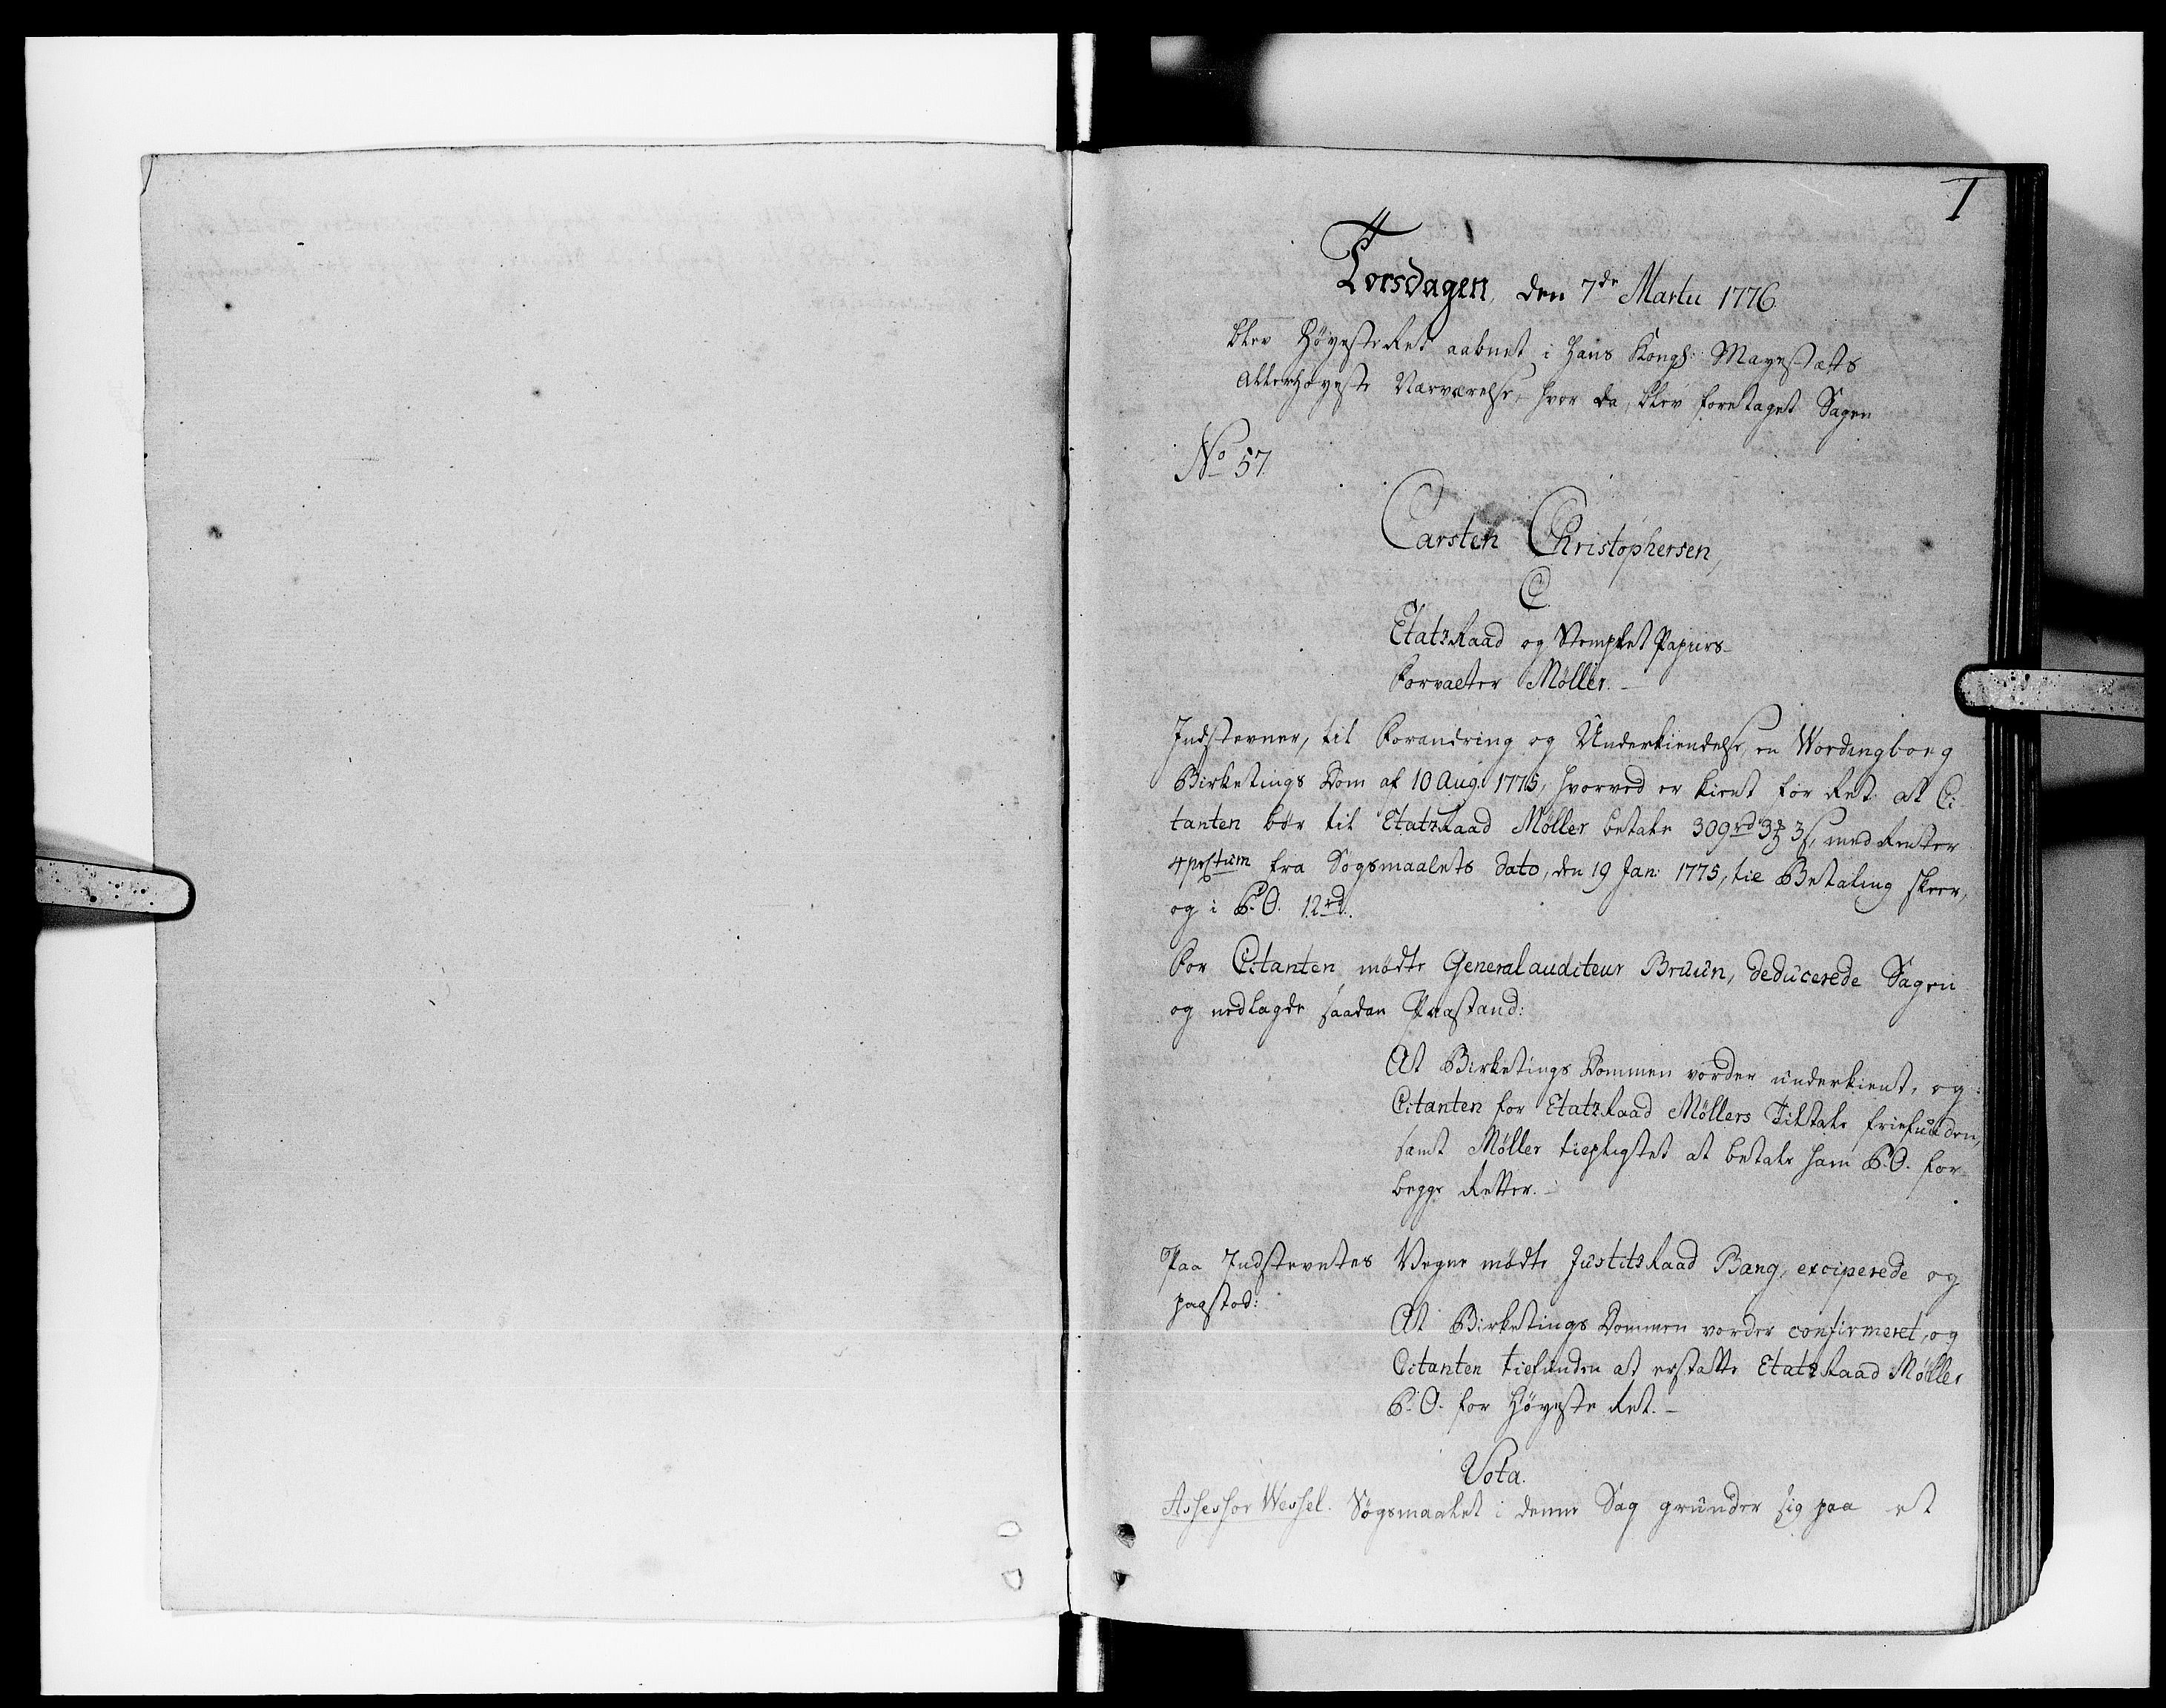 1
Torsdagen, den 7de Martii 1776
blev HøyesteRet aabnet i Hans Kongl: Mayestæts
Allerhøyeste Nærværelse, hvor da, blev foretaget Sagen
No 57.
Carsten Christophersen,
C.
EtatzRaad og StempletPapiirs-
Forvalter Møller. -
Indstevner, til Forandring og Underkiendelse, en Wordingborg
Birketings Dom af 10 Aug: 1775, hvorved er kient for Ret: at Ci-
tanten bør til EtatzRaad Møller betale 309rd 3 3, med Renter
4 prCtum fra Sogsmaalets Dato, den 19 Jan: 1775, til Betaling skeer,
og i P.O. 12rd.
For Citanten mødte Generalauditeur Bruun, deducerede Sagen
og nedlagde saadan Paastand:
At Birketings Dommen vorder underkient, og
Citanten for EtatzRaad Møllers Tiltale friefunden,
samt Møller tilpligtet at betale ham P.O. for
begge Retter. -
Paa Indstevntes Vegne mødte JustitzRaad Bang, exciperede og
paastod:
At Birketings Dommen vorder confirmeret, og
Citanten tilfunden at erstatte EtatzRaad Møller
P.O. for Høyeste Ret. -
Vota.
Assessor Wessel. Søgsmaalet i denne Sag grunder sig paa et